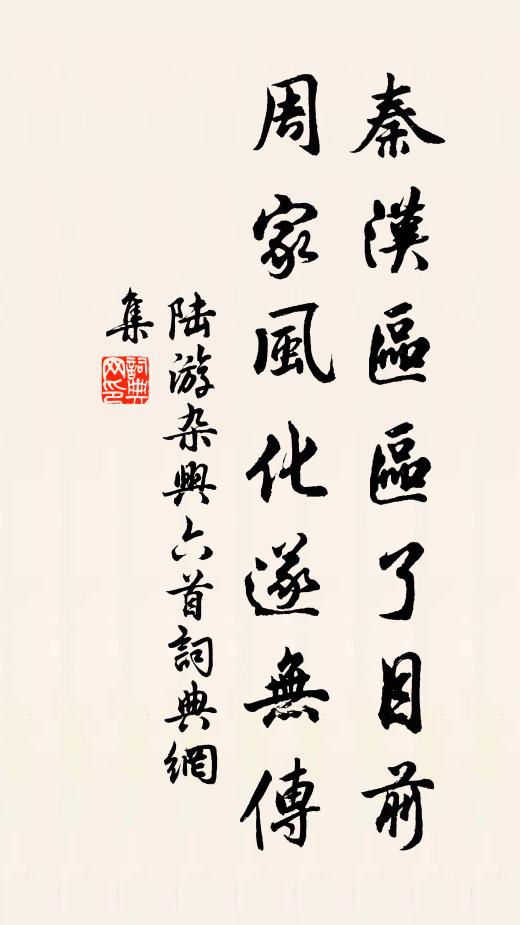 秦漢區區了目前
周家風化遂無傳
陆游杂興六首詞典網
集
詞典網印